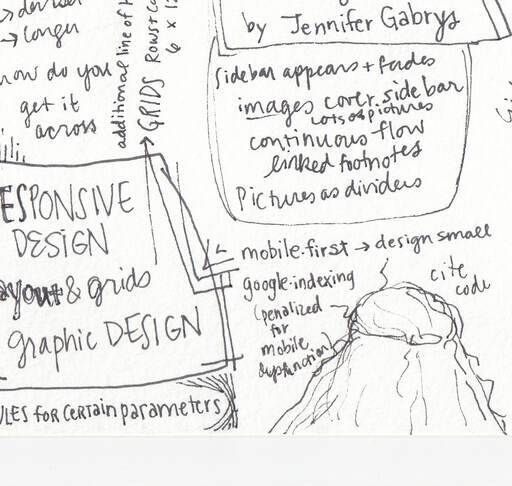 → longer
how do you
get it
across
additional line of
GRIDS ROWS+CO
6 x 12
by Jennifer Gabrys
Sidebar appears + fades
images cover sidebar
LOTS OF pictures
continuous flow
linked footnotes
Pictures as dividers
ESPONSIVE
DESIGN
ayout & grids
graphic DESIGN
ULES FOR CERTAIN parameters
mobile-first → design small
google-indexing
(penalized
for
mobile
dysfunction)
cite
code